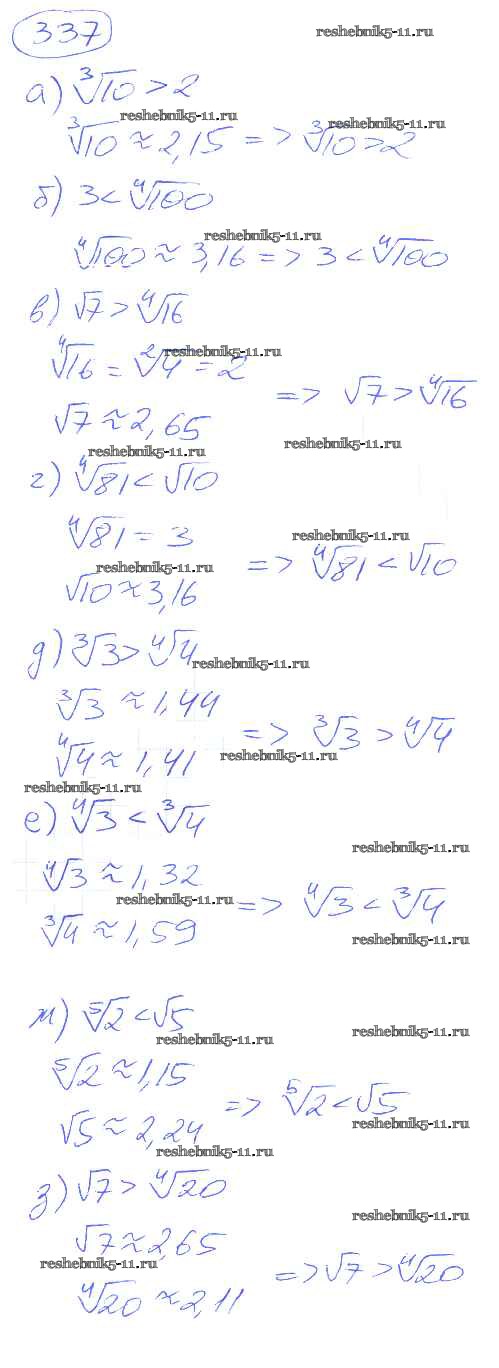 337
reshebnik5-11.ru
а) ∛10 > 2
reshebnik5-11.ru
∛10 ≈ 2,15 => ∛10 > 2
reshebnik5-11.ru
б) 3 < ∜100
reshebnik5-11.ru
∜100 ≈ 3,16 => 3 < ∜100
в) √7 > ∜16
reshebnik5-11.ru
∜16 = ²√4 = 2
=> √7 > ∜16
√7 ≈ 2,65
reshebnik5-11.ru
reshebnik5-11.ru
г) ∜81 < √10
∜81 = 3
reshebnik5-11.ru
=> ∜81 < √10
reshebnik5-11.ru
√10 ≈ 3,16
д) ∛3 > ∜4
reshebnik5-11.ru
∛3 ≈ 1,44
=> ∛3 > ∜4
reshebnik5-11.ru
∜4 ≈ 1,41
reshebnik5-11.ru
е) ∜3 < ∛4
reshebnik5-11.ru
∜3 ≈ 1,32
reshebnik5-11.ru
=> ∜3 < ∛4
∛4 ≈ 1,59
reshebnik5-11.ru
ж) ⁵√2 < √5
reshebnik5-11.ru
reshebnik5-11.ru
⁵√2 ≈ 1,15
=> ⁵√2 < √5
reshebnik5-11.ru
√5 ≈ 2,24
reshebnik5-11.ru
з) √7 > ∜20
reshebnik5-11.ru
√7 ≈ 2,65
reshebnik5-11.ru
=> √7 > ∜20
∜20 ≈ 2,11